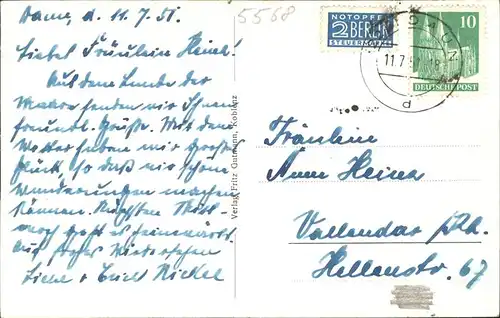 Daun, d. 11.7.51.
5568
Liebes Fräulein Heinz!
Auf dem Lande der
Maare senden wir Ihnen
freundl. Grüße. Mit dem
Wetter haben wir großes
Glück, so daß wir schöne
Wanderungen machen
können. Nächsten Mitt-
woch geht es heimwärts.
Auf frohes Wiedersehen
Liesel + Erich Nickel
Verlag Fritz Gutmann, Koblenz
NOTOPFER
2 BERLIN
STEUERMARKE
DAUN
11.7.51.18
d
10
DEUTSCHE POST
Fräulein
Anni Heinz
Vallendar Rh.
Hellenstr. 67